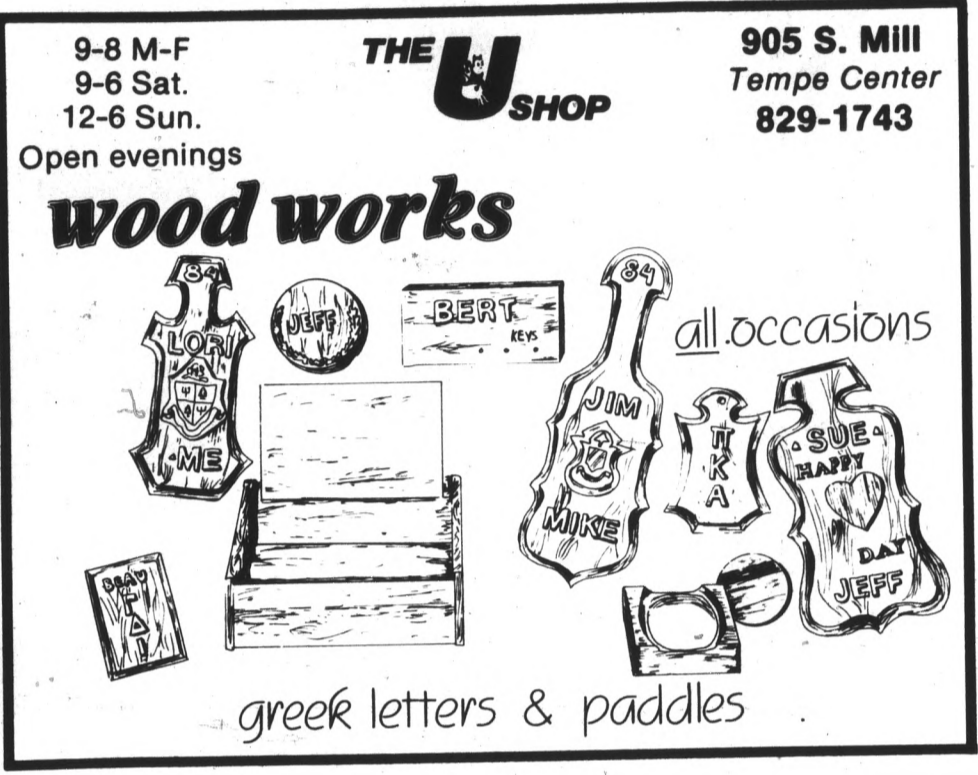 9-8 M-F
9-6 Sat.
12-6 Sun.
Open evenings
THE U SHOP
905 S. Mill
Tempe Center
829-1743
wood works
84
LORI
ME
JEFF
BERT
KEYS
84
JIM
MIKE
all occasions
ΠΚΑ
SUE
HAPPY
DAY
JEFF
ΓΔ
greek letters & paddles